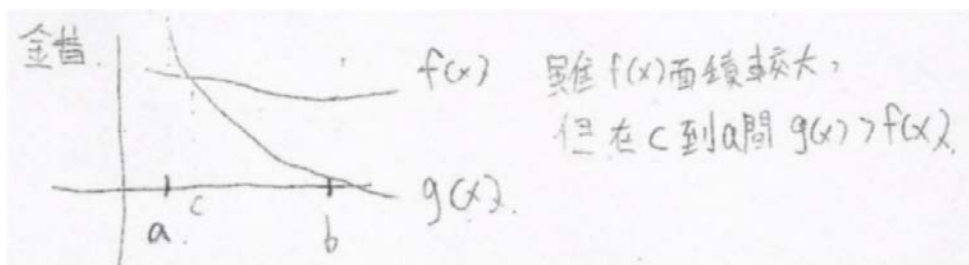 錯
f(x)
g(x)
a
c
b
雖 f(x)面積較大,
但在 c 到 a 間 g(x) > f(x).